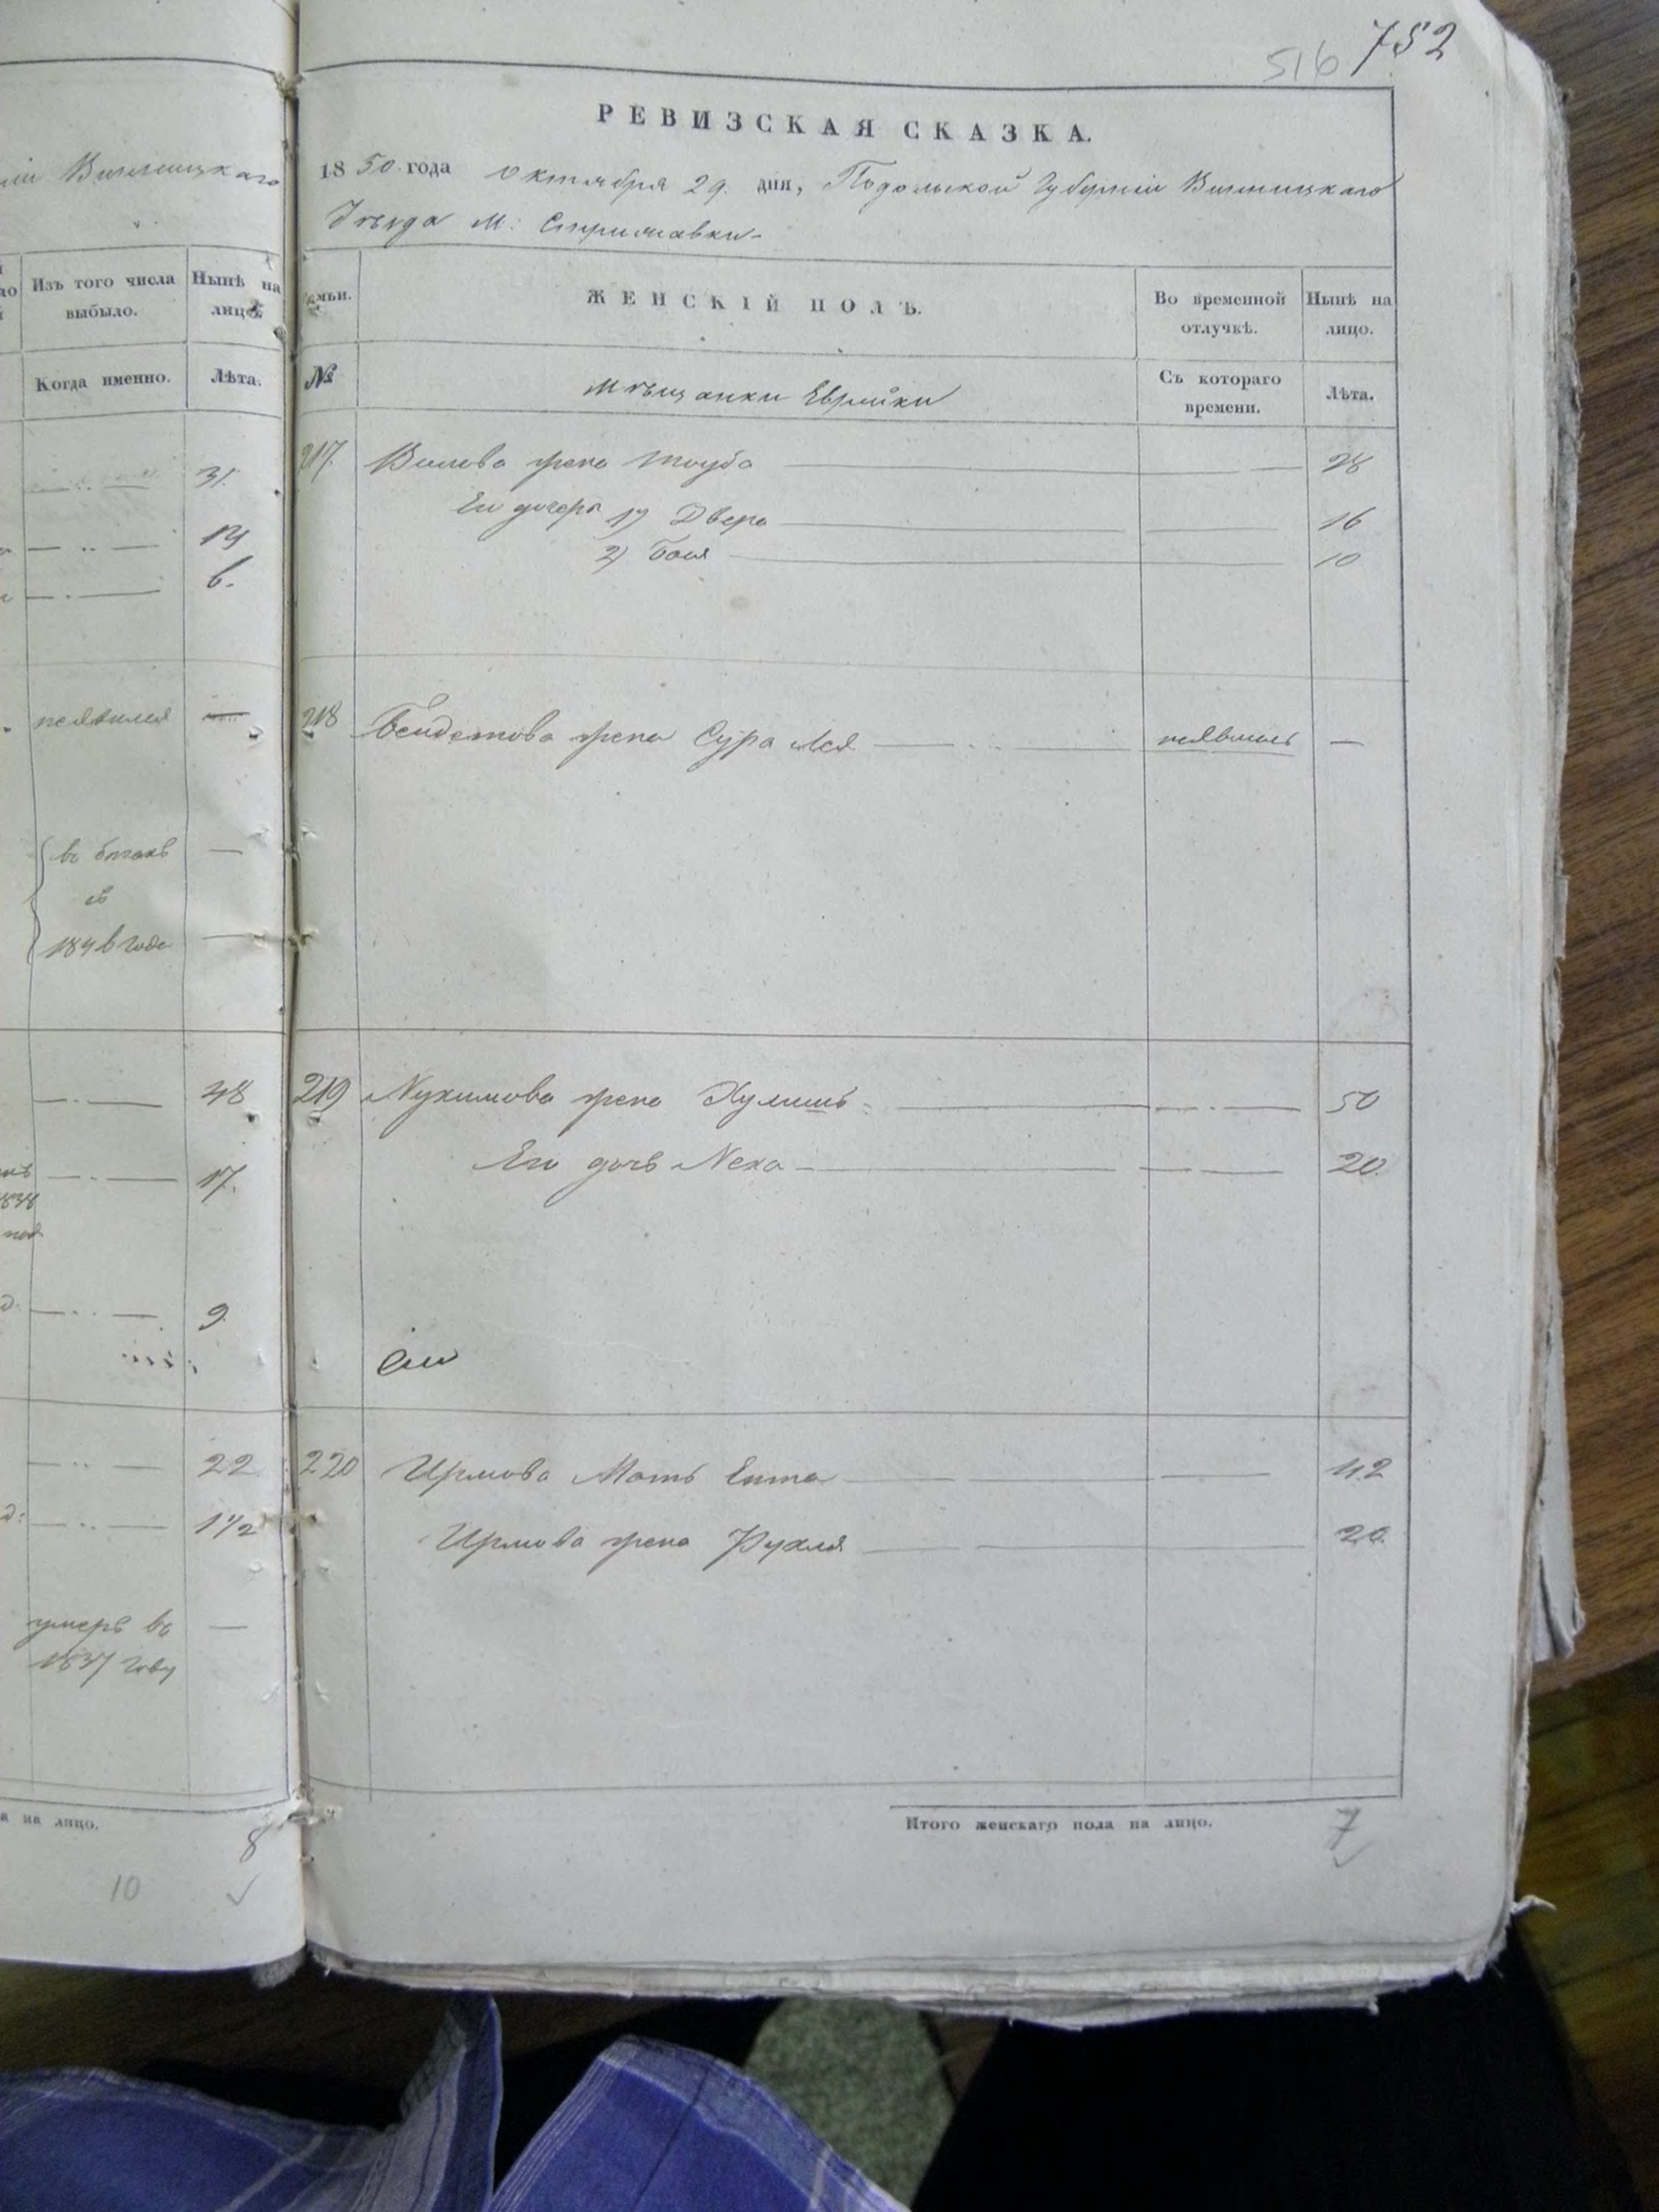 ніи Винницкаго
Изъ того числа выбыло.
Нынѣ на лицо.
Когда именно.
Лѣта.
31.
14
6.
неявился —
въ бѣгахъ —
съ
1846 года —
48
17.
1838
9.
22.
1 1/2
умеръ въ —
1837 году
а на лицо.
8
10
516 752
РЕВИЗСКАЯ СКАЗКА.
1850 года октября 29. дня, Подольской Губерніи Винницкаго
Уѣзда М: Стрижавки
Семьи.
ЖЕНСКІЙ ПОЛЪ.
Во временной отлучкѣ.
Нынѣ на лицо.
№
Мѣщанки Еврейки
Съ котораго времени.
Лѣта.
217. Волова жена Тауба 28
Ея дочери 1) Двера 16
2) Бася 10
218 жена Сура Лея неявилась —
219 Нухимова жена 50
Его дочь Неха 20.
220 Ирмова Мать Ента 42
Ирмова жена Рухля 20.
Итого женскаго пола на лицо. 7